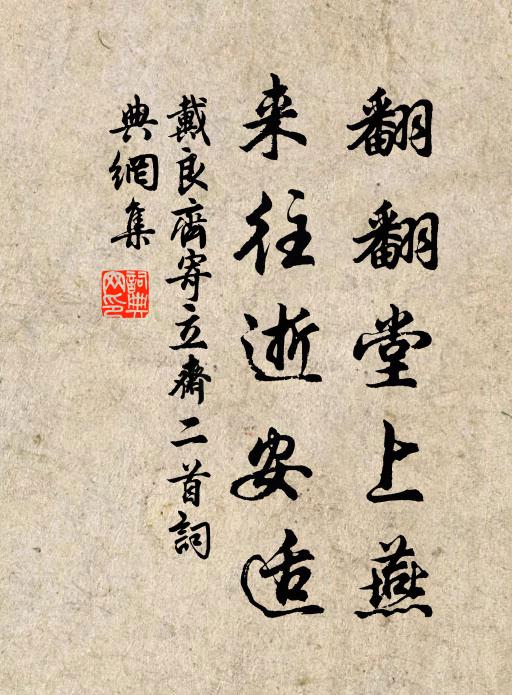 翻翻堂上燕
来往逝安适
戴良齊寄立齋二首詞
典網集
詞典
网印